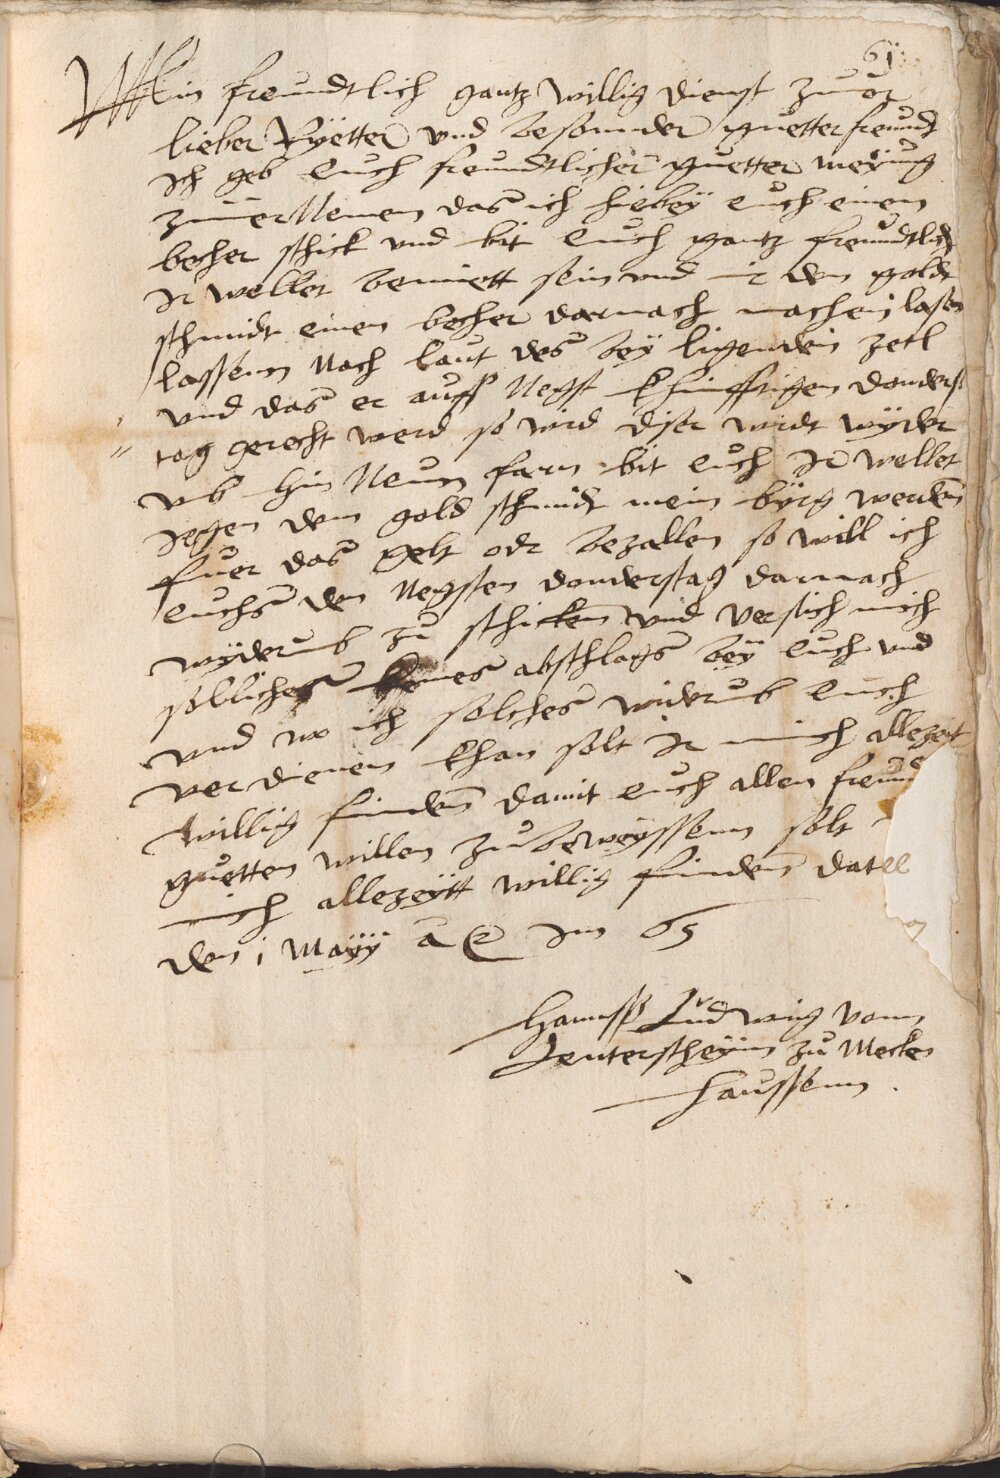 61
Mein freundtlich gantz willig dienst zuuor
lieber Ryetter vnd besonnder guetter freundt
Ich geb Euch freundtlicher guetter meynung
zuuerNemen das ich hiebey Euch einen
becher schick vnd bit Euch gantz freundtlich
Ir wellet bemiett sein vnd mir den goldt
schmidt einen becher darnach machen lasen
lassenn Nach laut des bey ligenden zetl
vnd das er auff Negst khinfftigen donders
tag gerecht werd so wird diser wirdt wyder
vb hin Neun farn bit euch Ir wellet
gegen dem gold schmidt mein byrg werden
fuer das gelt odr bezallen so will ich
Euchs den Negsten donderstag darnach
wyderub zu schicken vnd versich mich
solliches keines abschlags bey Euch vnd
vnd wo ich solches widerub Euch
verdienen khan solt Ir mich allezeit
willig finden damit Euch allen freund
guetten willen zu beweyssenn solt
mich allezeytt willig finden datt
den 1 Mayy Im 65
Hannsß Ludwig vonn
Lentersheym zu Mecken
haussenn